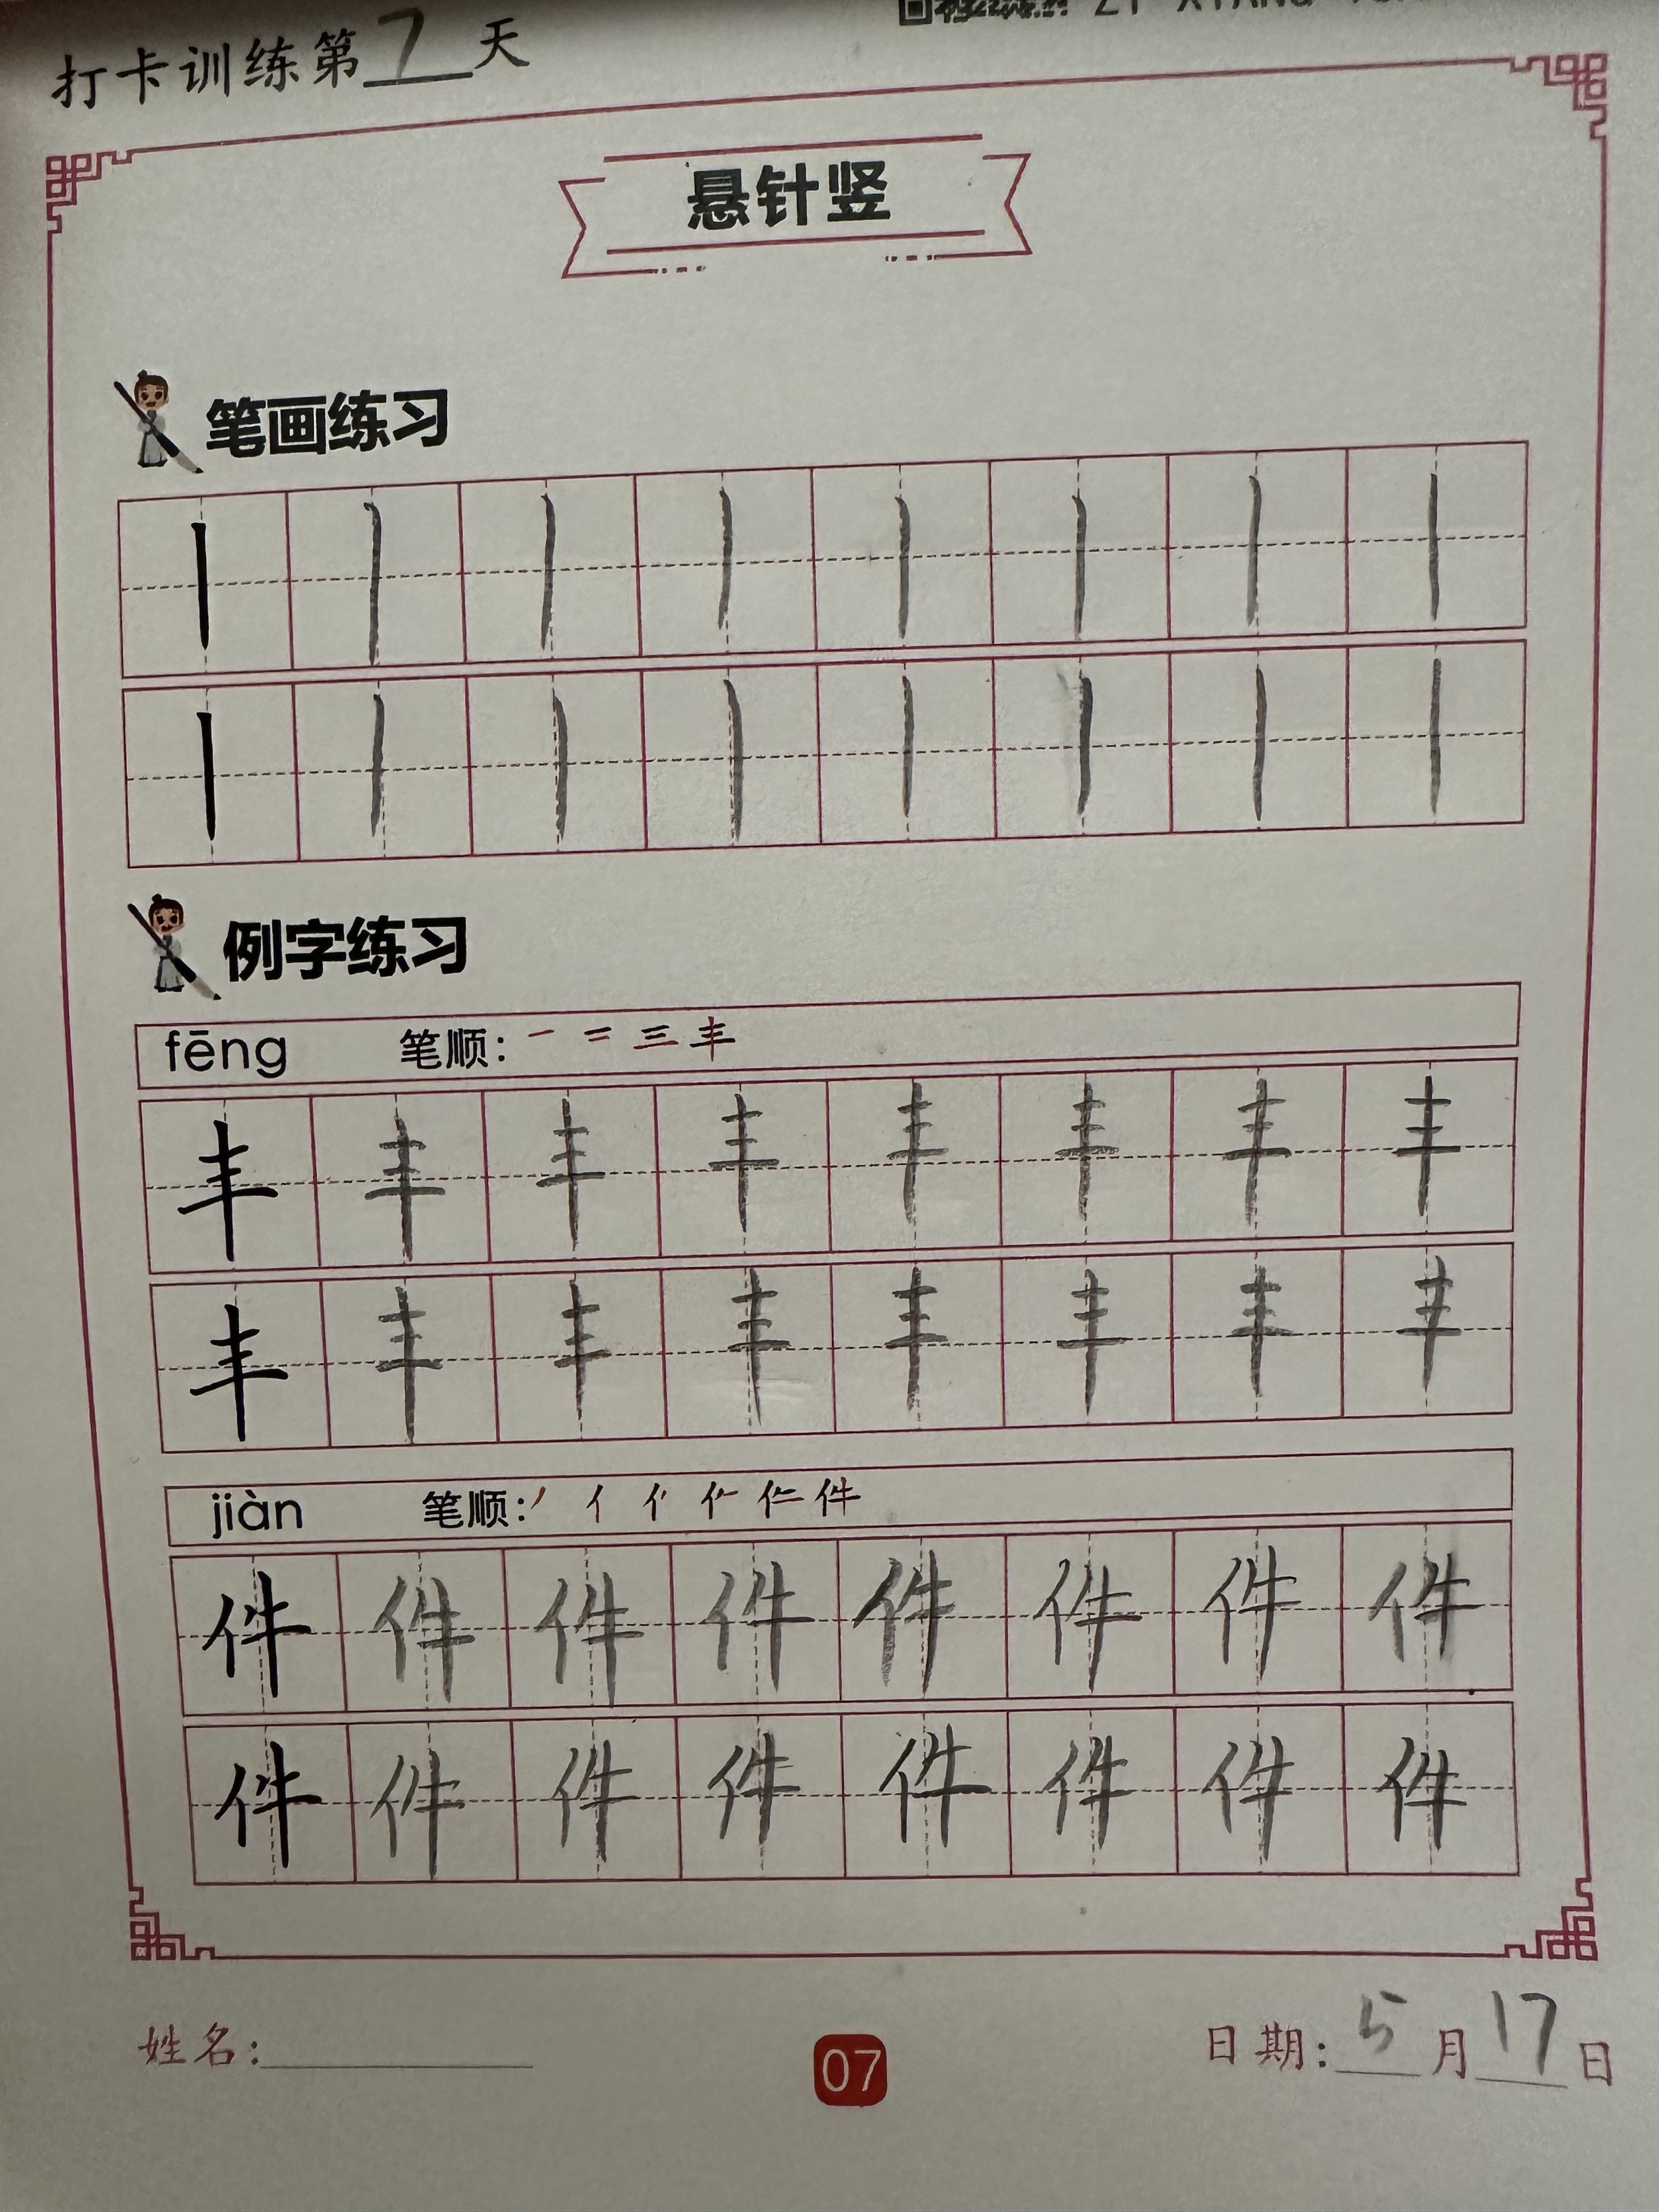 打卡训练第7天
悬针竖
笔画练习
丨丨丨丨丨丨丨丨
丨丨丨丨丨丨丨丨
例字练习
fēng 笔顺: 一 二 三 丰
丰丰丰丰丰丰丰丰
丰丰丰丰丰丰丰丰
jiàn 笔顺: 丿 亻 件
件件件件件件件件
件件件件件件件件
姓名:
07
日期: 5月17日